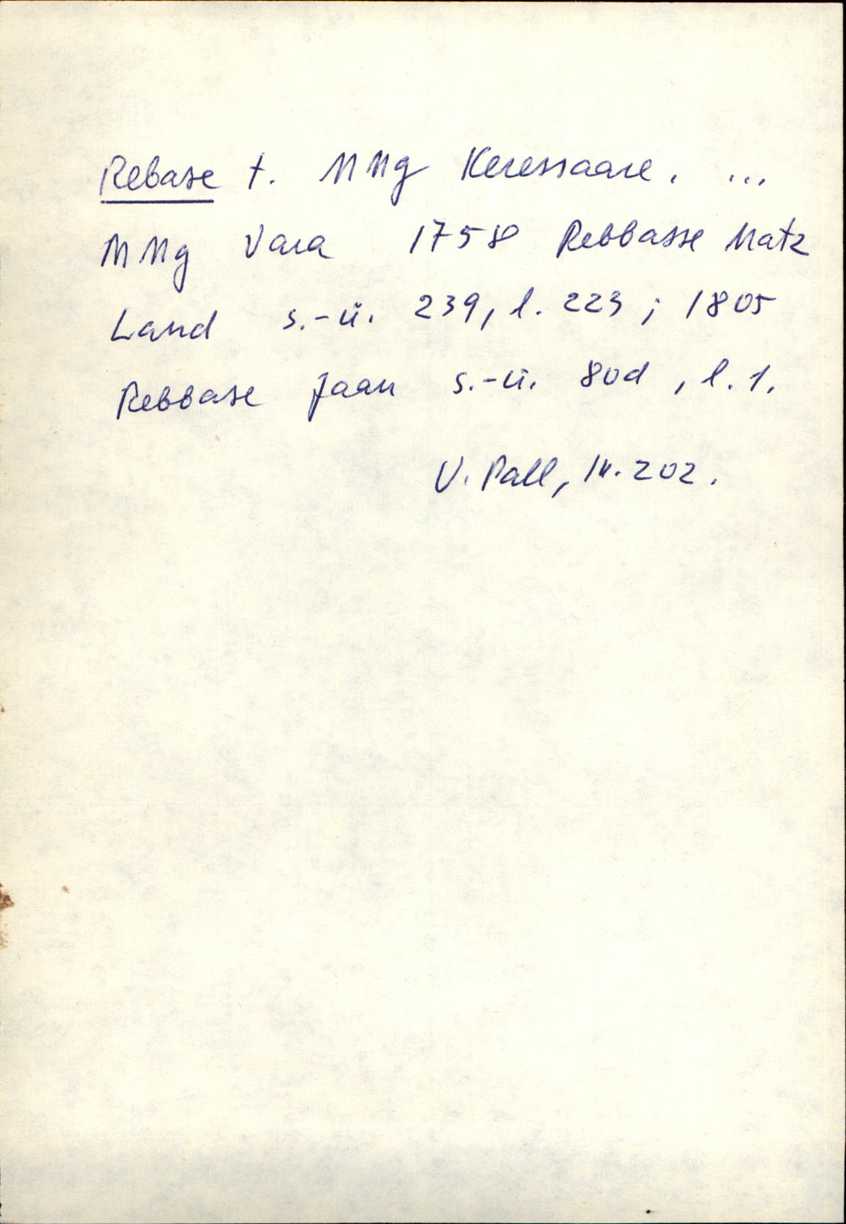 Rebase t. MMg Keressaare. ...
MMg Vara 1758 Rebbasse Matz
Land s.-ü. 239, l. 223; 1805
Rebbase Jaan s.-ü. 80d, l. 1.
V. Pall, 202.